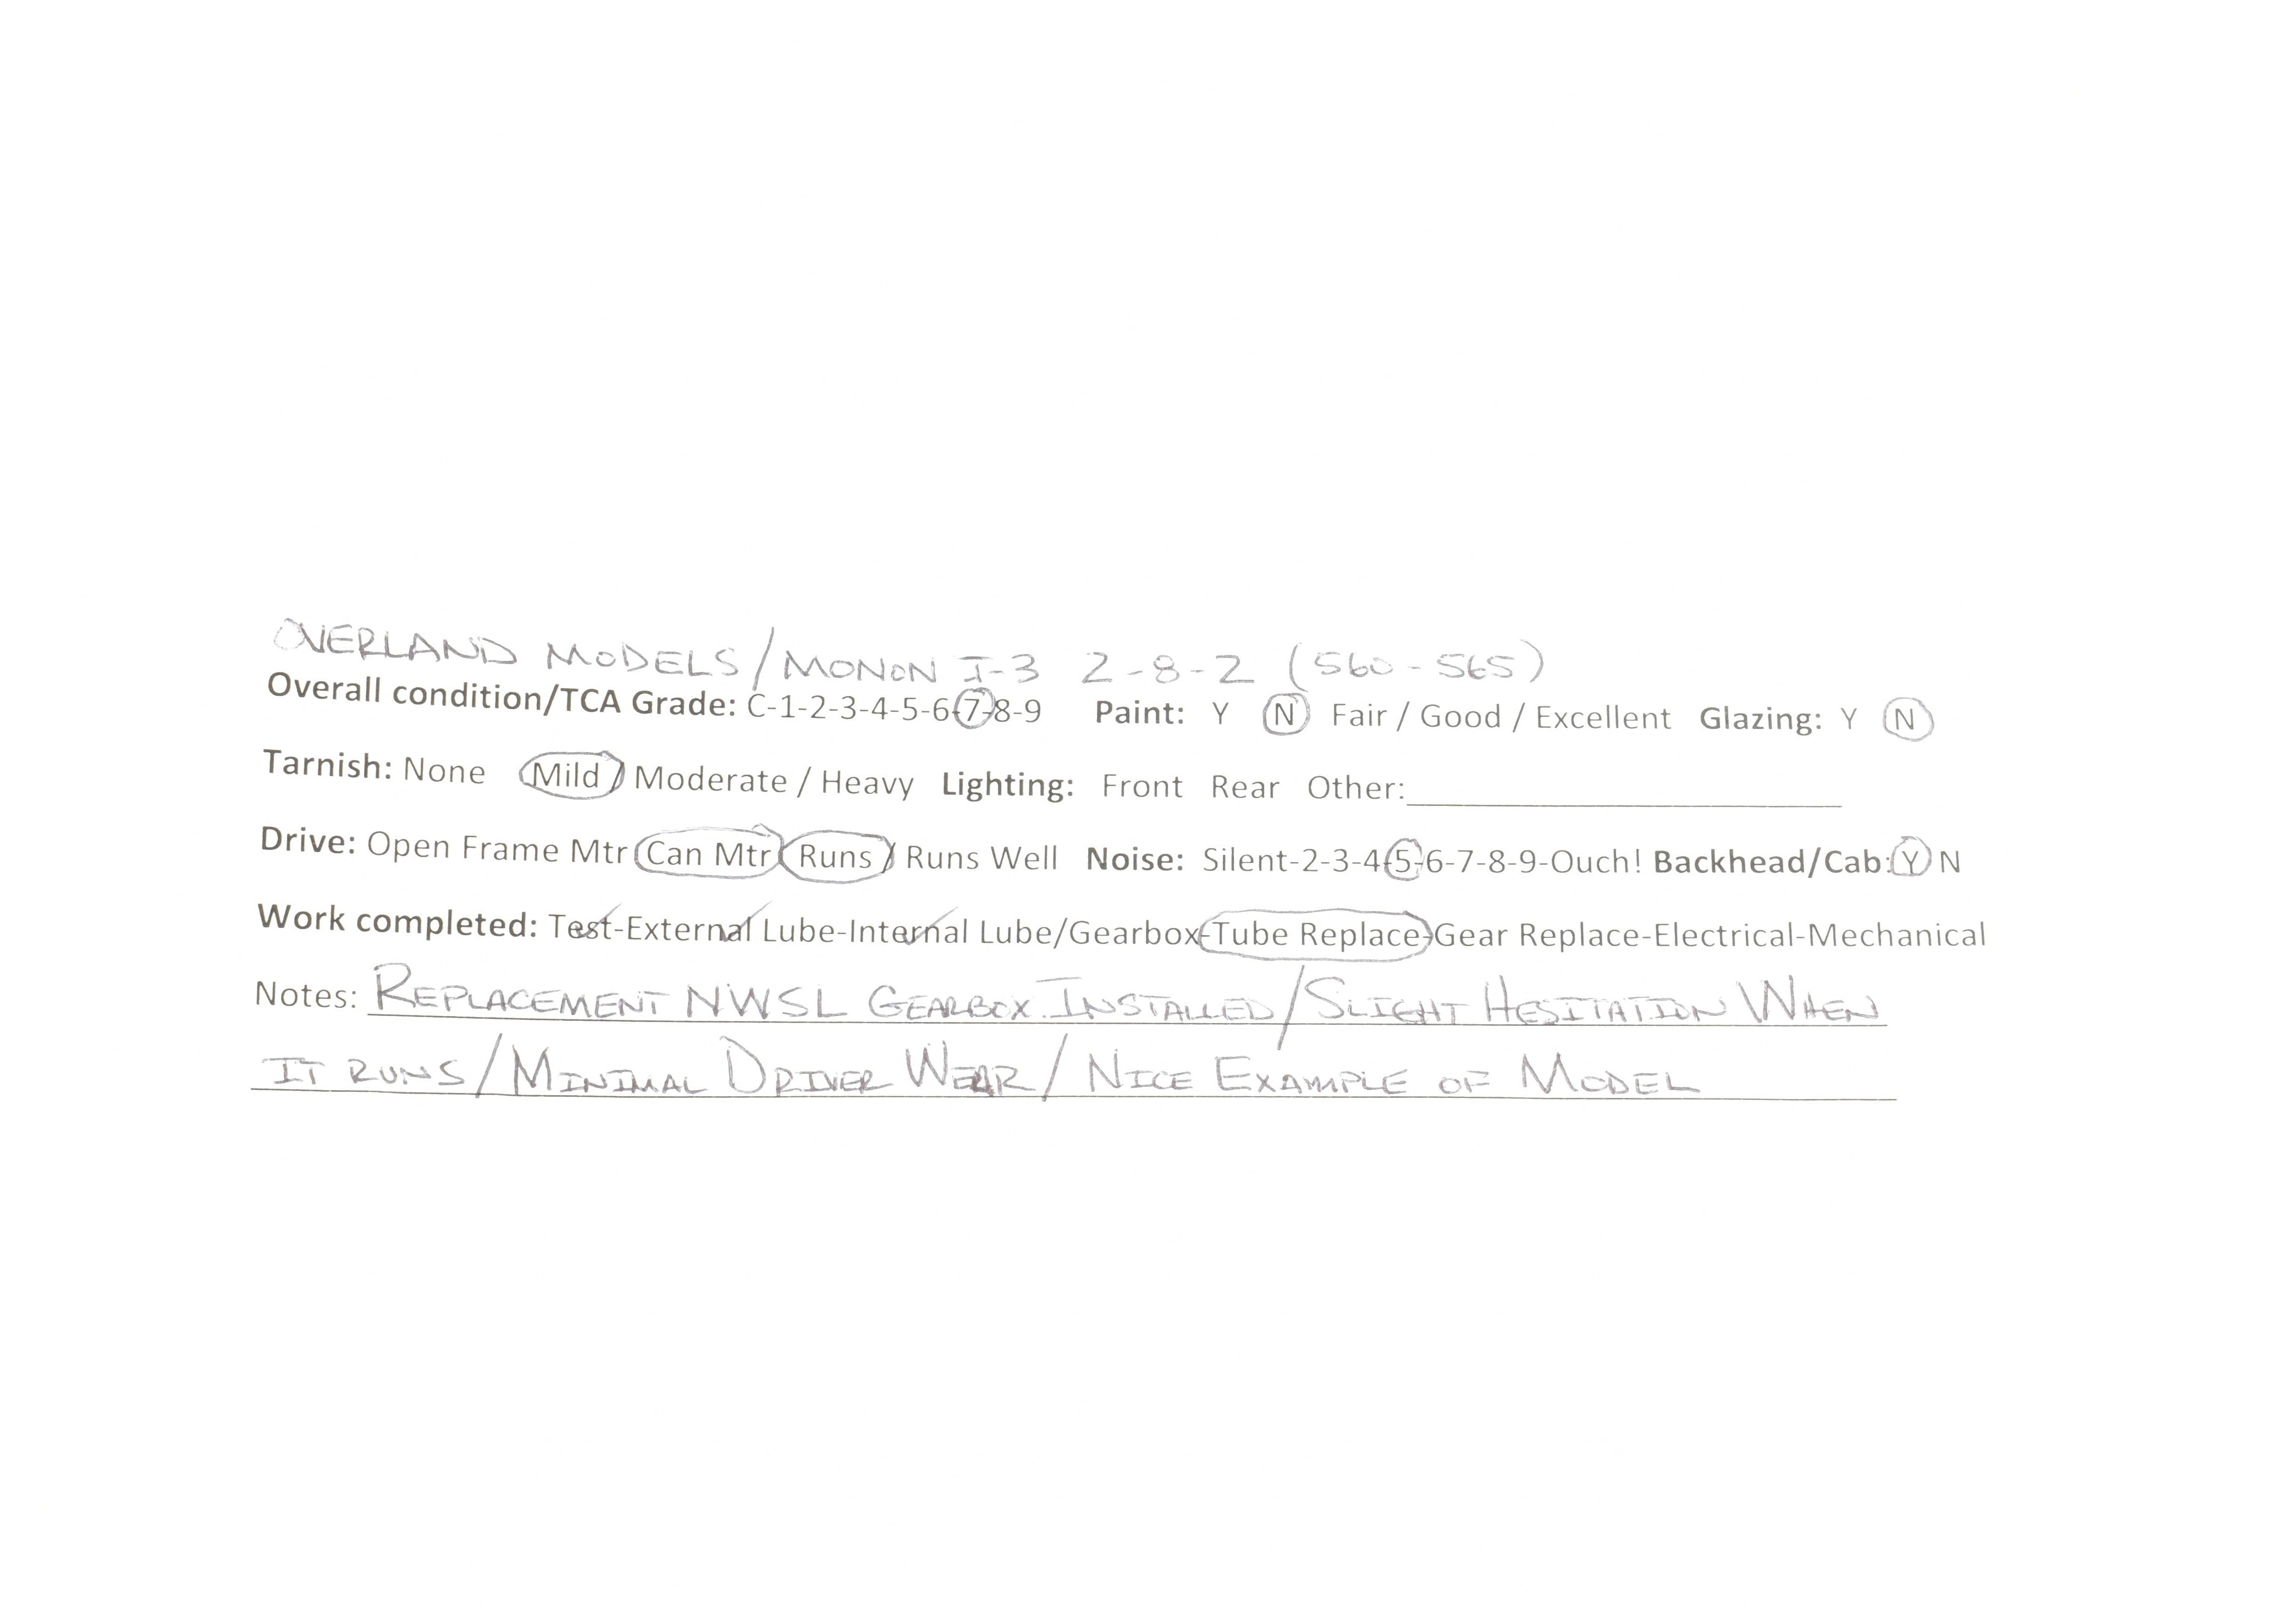 OVERLAND MODELS/MONON J-3 2-8-2 (560-565)
Overall condition/TCA Grade: C-1-2-3-4-5-6-7-8-9 Paint: Y N Fair / Good / Excellent Glazing: Y N
Tarnish: None Mild / Moderate / Heavy Lighting: Front Rear Other:
Drive: Open Frame Mtr Can Mtr Runs / Runs Well Noise: Silent-2-3-4-5-6-7-8-9-Ouch! Backhead/Cab: Y N
Work completed: Test-External Lube-Internal Lube/Gearbox-Tube Replace-Gear Replace-Electrical-Mechanical
Notes: REPLACEMENT NWSL GEARBOX INSTALLED/SLIGHT HESITATION WHEN
IT RUNS/MINIMAL DRIVER WEAR/NICE EXAMPLE OF MODEL